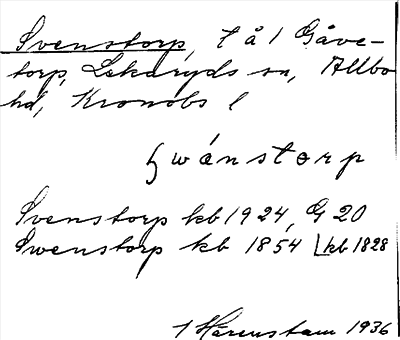 Svenstorp, t å 1 Gåve-
torp, Lekaryds sn, Allbo
hd, Kronobs l
swánstorp
Svenstorp kb 1924, G 20
Swenstorp kb 1854 kb 1828
Härenstam 1936